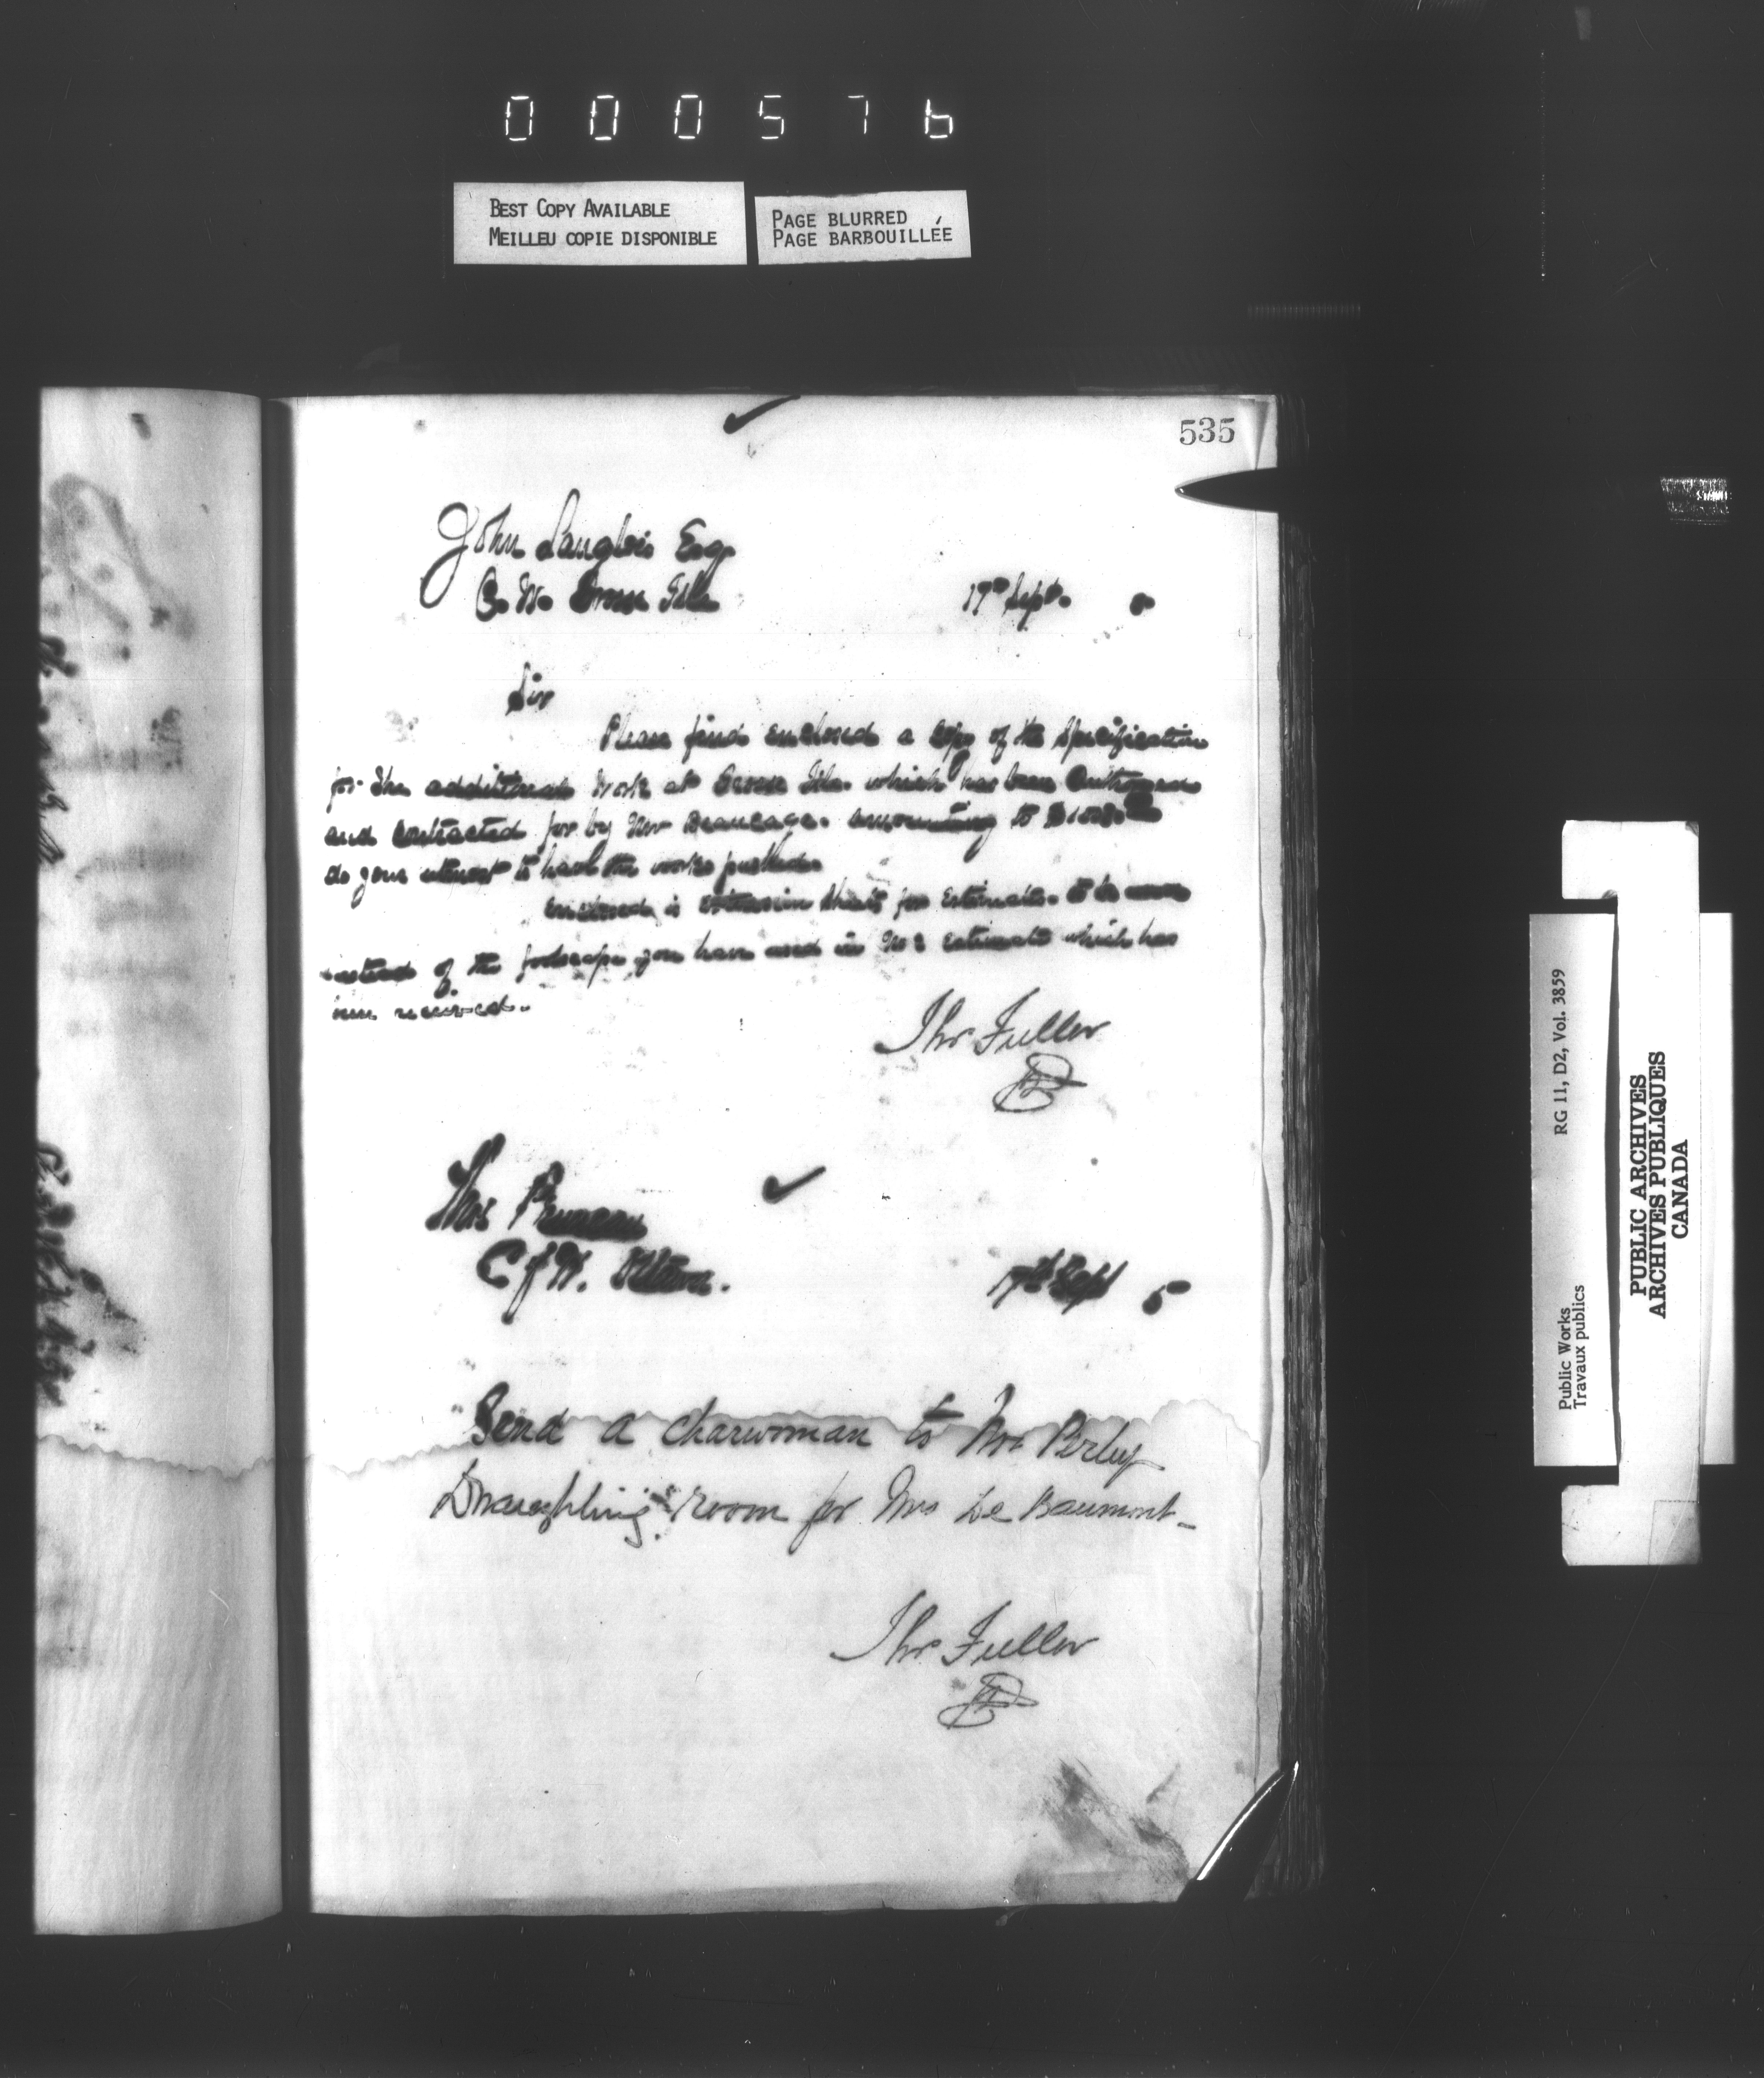 000576
BEST COPY AVAILABLE
MEILLEU COPIE DISPONIBLE
PAGE BLURRED
PAGE BARBOUILLÉE
535
John Langlois Esq
C. W. Grosse Isle 17th Sept. 5
Sir
Please find enclosed a copy of the Specification
for the additional work at Grosse Isle. which has been
and contracted for by Mr Beaucage. amounting to
do your utmost to have the works pushed.
Enclosed is extension sheets for Estimates. to be used
instead of the foolscap you have used in No 2 estimate which has
been received.
Thos Fuller
Thos
C of W. Ottawa. 17th Sept 5
Send a charwoman to Mr Perley
Draughting room for Mrs De Baumont_
Thos Fuller
RG 11, D2, Vol. 3859
Public Works
Travaux publics
PUBLIC ARCHIVES
ARCHIVES PUBLIQUES
CANADA